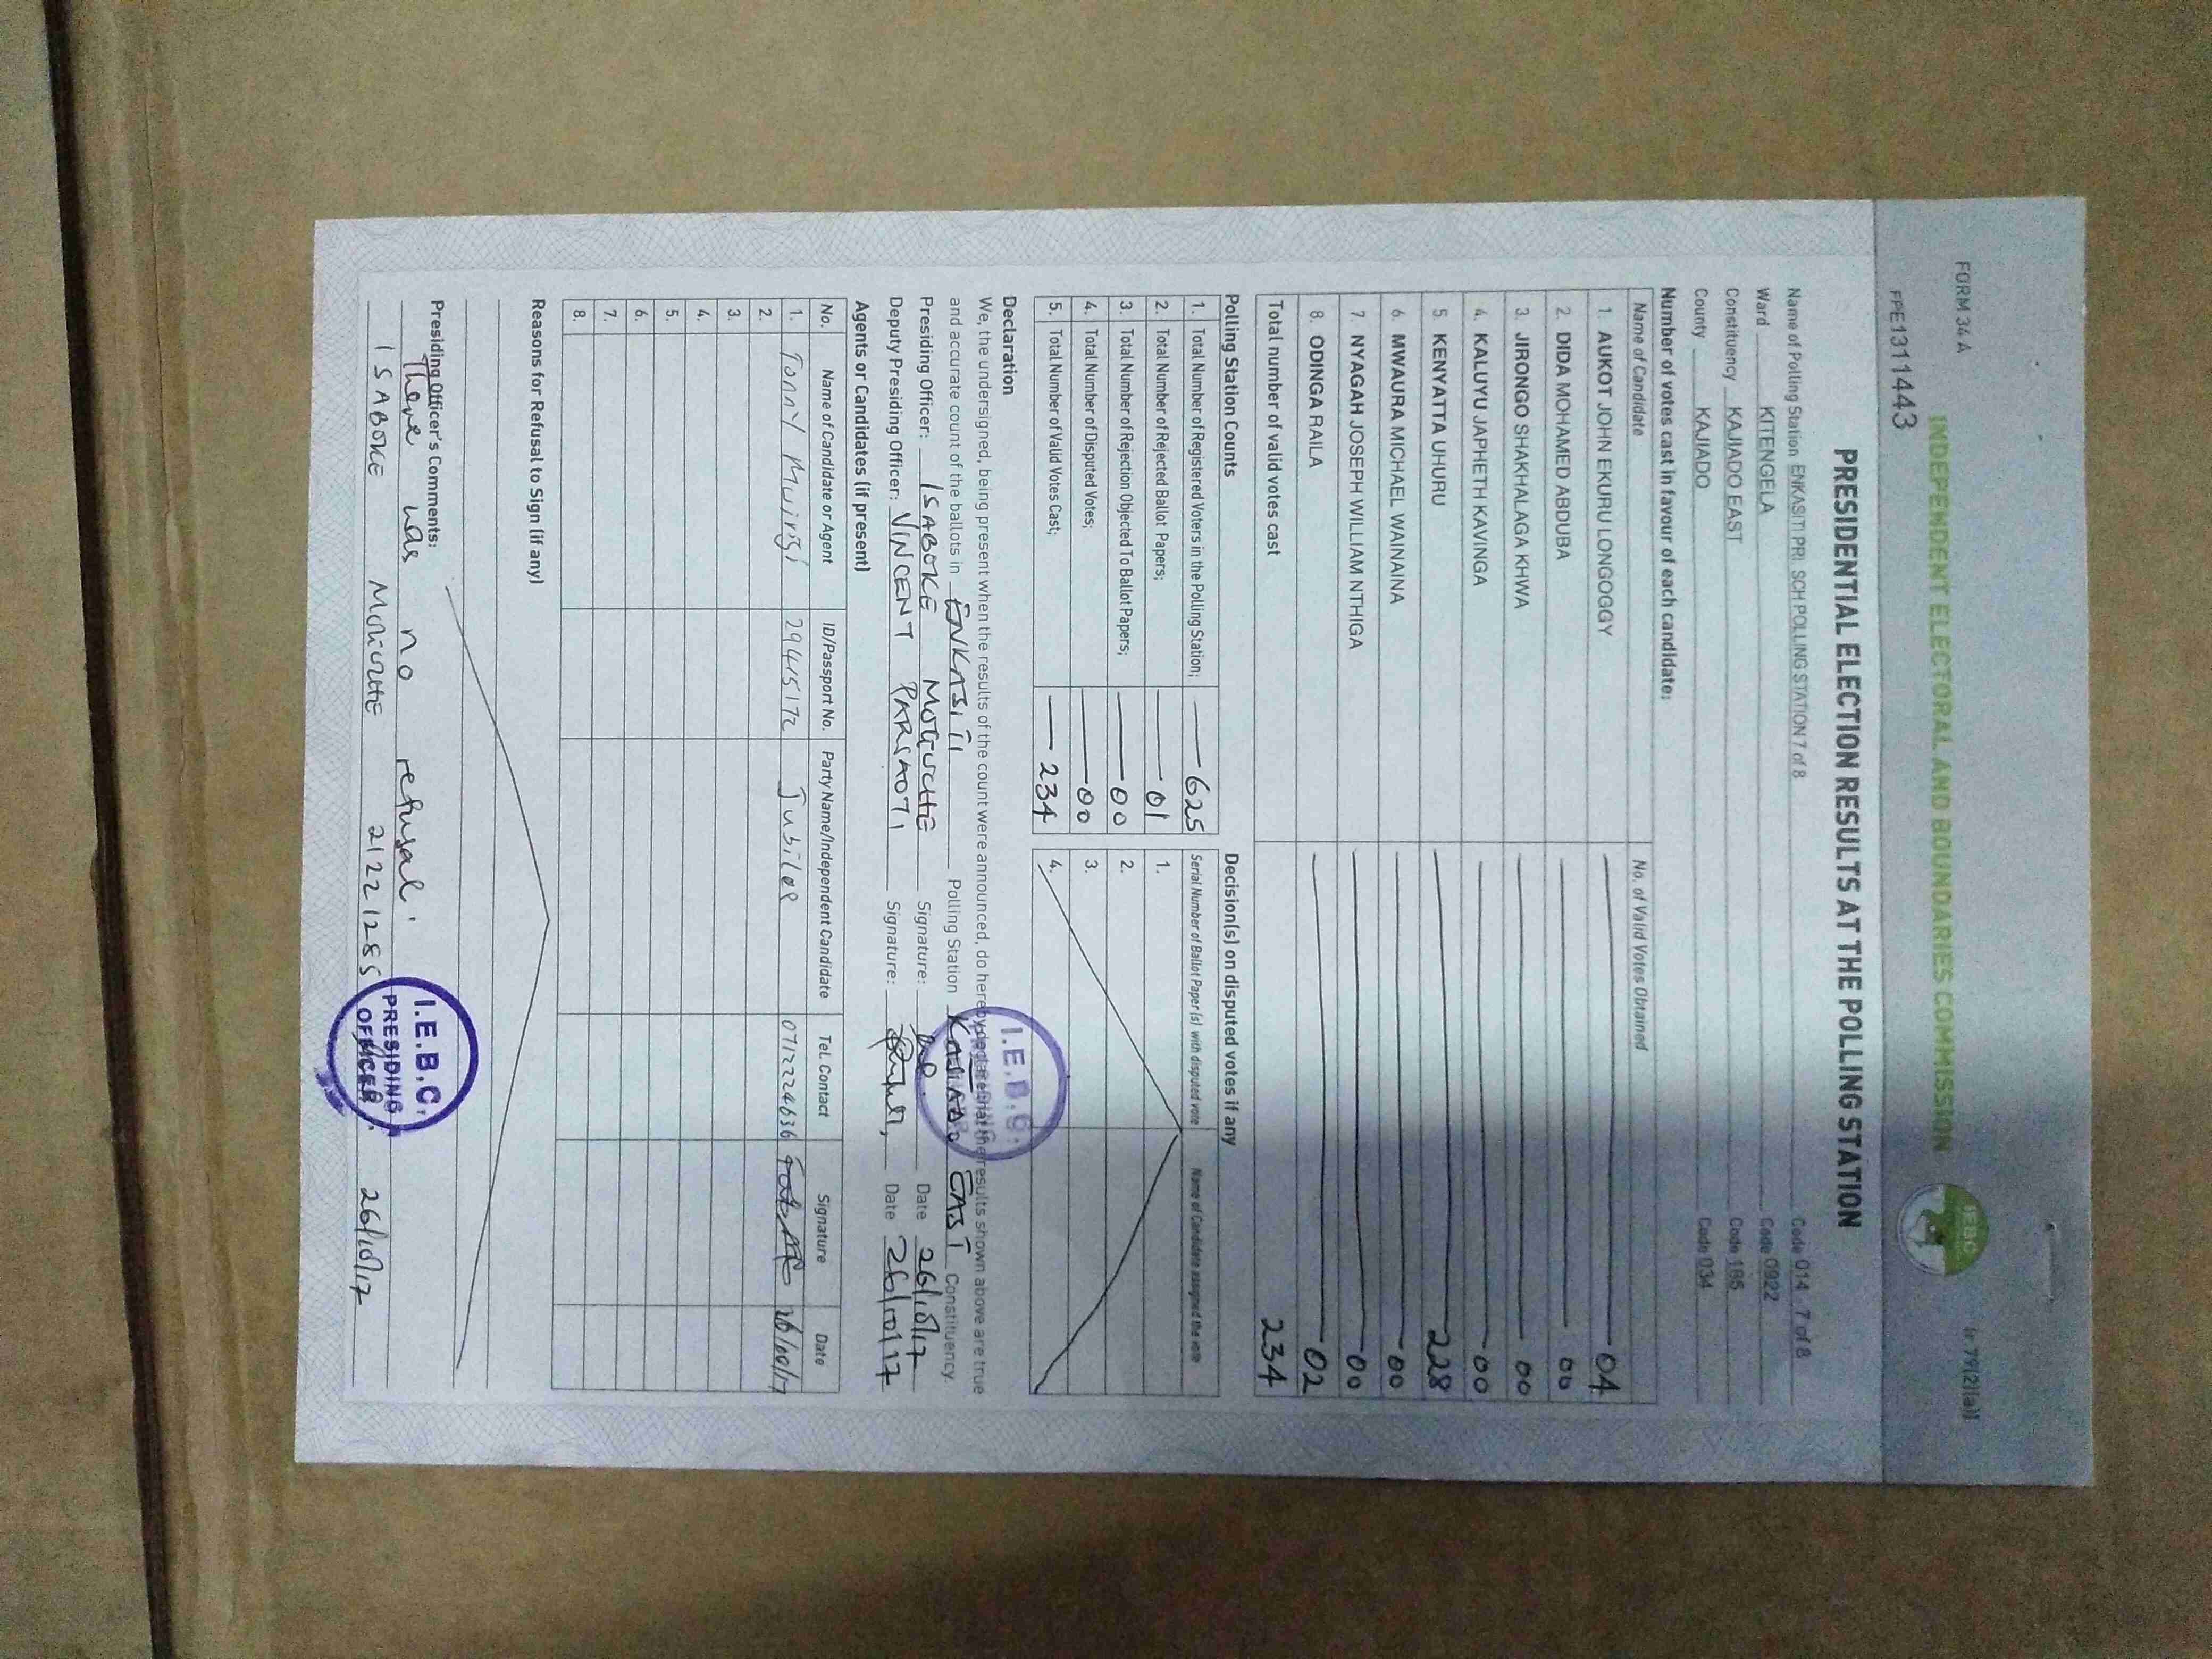 FORM 34 A
(r 79(2)(a))
INDEPENDENT ELECTORAL AND BOUNDARIES COMMISSION
IEBC
FPE1311443
PRESIDENTIAL ELECTION RESULTS AT THE POLLING STATION
Name of Polling Station ENKASITI PRI. SCH POLLING STATION 7 of 8 Code 014 7 of 8
Ward KITENGELA Code 0922
Constituency KAJIADO EAST Code 185
County KAJIADO Code 034
Number of votes cast in favour of each candidate:
Name of Candidate No. of Valid Votes Obtained
1. AUKOT JOHN EKURU LONGOGGY 04
2. DIDA MOHAMED ABDUBA 00
3. JIRONGO SHAKHALAGA KHWA 00
4. KALUYU JAPHETH KAVINGA 00
5. KENYATTA UHURU 228
6. MWAURA MICHAEL WAINAINA 00
7. NYAGAH JOSEPH WILLIAM NTHIGA 00
8. ODINGA RAILA 02
Total number of valid votes cast 234
Polling Station Counts Decision(s) on disputed votes if any
1. Total Number of Registered Voters in the Polling Station; 625 Serial Number of Ballot Paper (s) with disputed vote Name of Candidate assigned the vote
2. Total Number of Rejected Ballot Papers; 01 1.
3. Total Number of Rejection Objected To Ballot Papers; 00 2.
4. Total Number of Disputed Votes; 00 3.
5. Total Number of Valid Votes Cast; 234 4.
Declaration
We, the undersigned, being present when the results of the count were announced, do hereby declare that the results shown above are true
and accurate count of the ballots in ENKASITI Polling Station KAJIADO EAST Constituency.
Presiding Officer: ISABOKE MOGUCHE Signature: Date 26/10/17
Deputy Presiding Officer: VINCENT Signature: Date 26/10/17
I.E.B.C.
Agents or Candidates (if present)
No. Name of Candidate or Agent ID/Passport No. Party Name/Independent Candidate Tel. Contact Signature Date
1. Tonny Muirigi 29445172 Jubilee 0712224636 26/10/17
2.
3.
4.
5.
6.
7.
8.
Reasons for Refusal to Sign (if any)
Presiding Officer's Comments:
There was no refusal.
ISABOKE 22/1285 26/10/17
I.E.B.C.
PRESIDING
OFFICER